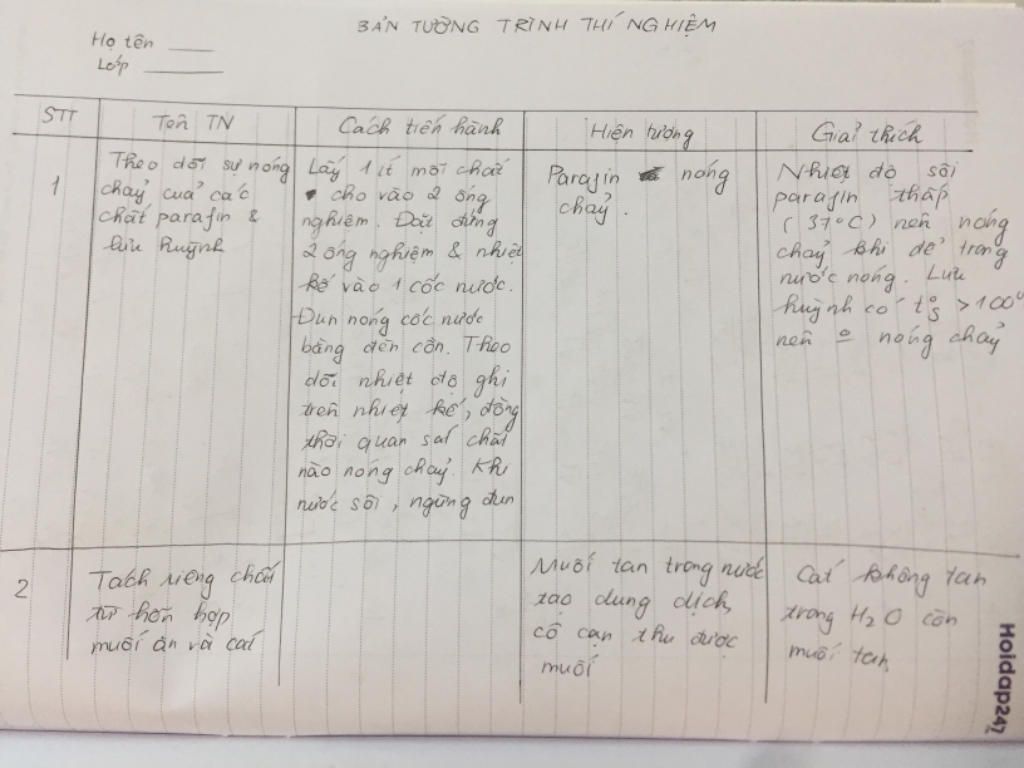 BẢN TƯỜNG TRÌNH THÍ NGHIỆM
Họ tên
Lớp
STT
Tên TN
Cách tiến hành
Hiện tượng
Giải thích
1
Theo dõi sự nóng
chảy của các
chất parafin &
lưu huỳnh
Lấy 1 ít mỗi chất
cho vào 2 ống
nghiệm. Đặt đứng
2 ống nghiệm & nhiệt
kế vào 1 cốc nước.
Đun nóng cốc nước
bằng đèn cồn. Theo
dõi nhiệt độ ghi
trên nhiệt kế, đồng
thời quan sát chất
nào nóng chảy. Khi
nước sôi, ngừng đun
Parafin nóng
chảy.
Nhiệt độ sôi
parafin thấp
(37°C) nên nóng
chảy khi để trong
nước nóng. Lưu
huỳnh có t°s >100°
nên nóng chảy
2
Tách riêng chất
từ hỗn hợp
muối ăn và cát
Muối tan trong nước
tạo dung dịch,
cô cạn thu được
muối
Cát không tan
trong H2O còn
muối tan
Hoidap247